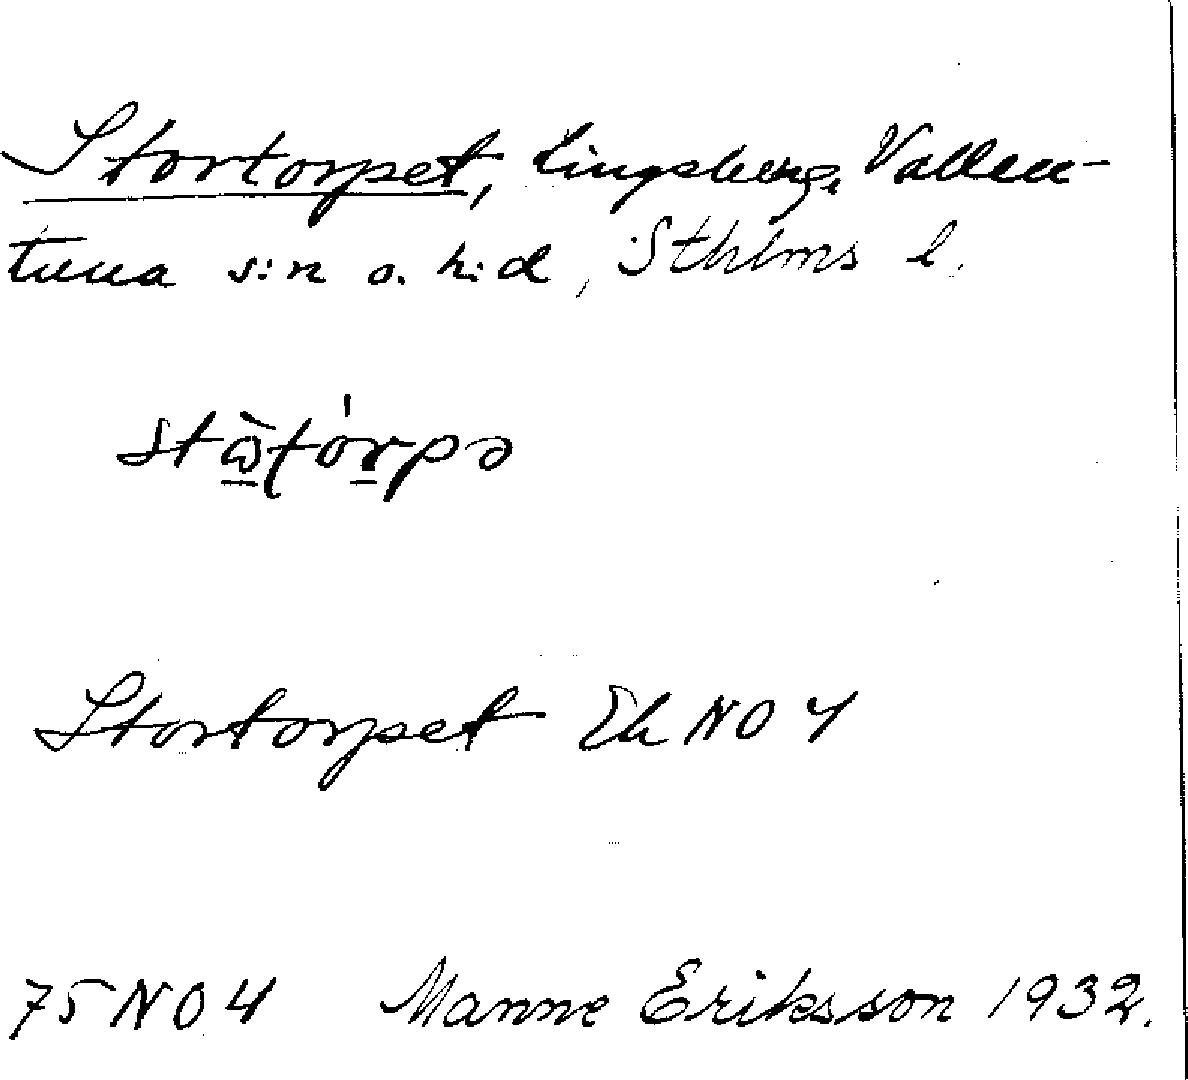 Stortorpet, Lingsberg, Vallen-
tuna s:n o. h:d, Sthlms l.
Stortorpet Ek NO 4
75 NO 4 Manne Eriksson 1932.